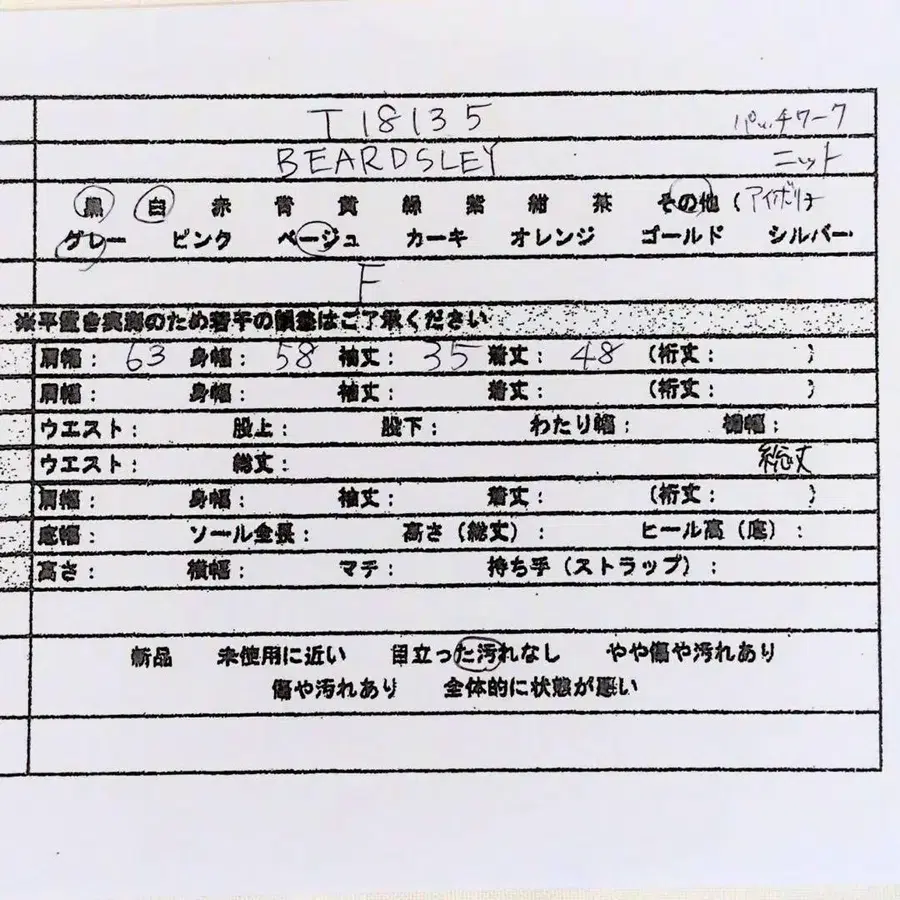 T18135 パッチワーク
BEARDSLEY ニット
黒 白 赤 青 黄 緑 紫 紺 茶 その他 (アイボリー
グレー ピンク ベージュ カーキ オレンジ ゴールド シルバー
F
※平置き実寸のため若干の誤差はご了承ください
肩幅: 63 身幅: 58 袖丈: 35 着丈: 48 (裄丈: )
肩幅: 身幅: 袖丈: 着丈: (裄丈: )
ウエスト: 股上: 股下: わたり幅: 裾幅:
ウエスト: 総丈: 総丈
肩幅: 身幅: 袖丈: 着丈: (裄丈: )
底幅: ソール全長: 高さ(総丈): ヒール高(底):
高さ: 横幅: マチ: 持ち手(ストラップ):
新品 未使用に近い 目立った汚れなし やや傷や汚れあり
傷や汚れあり 全体的に状態が悪い